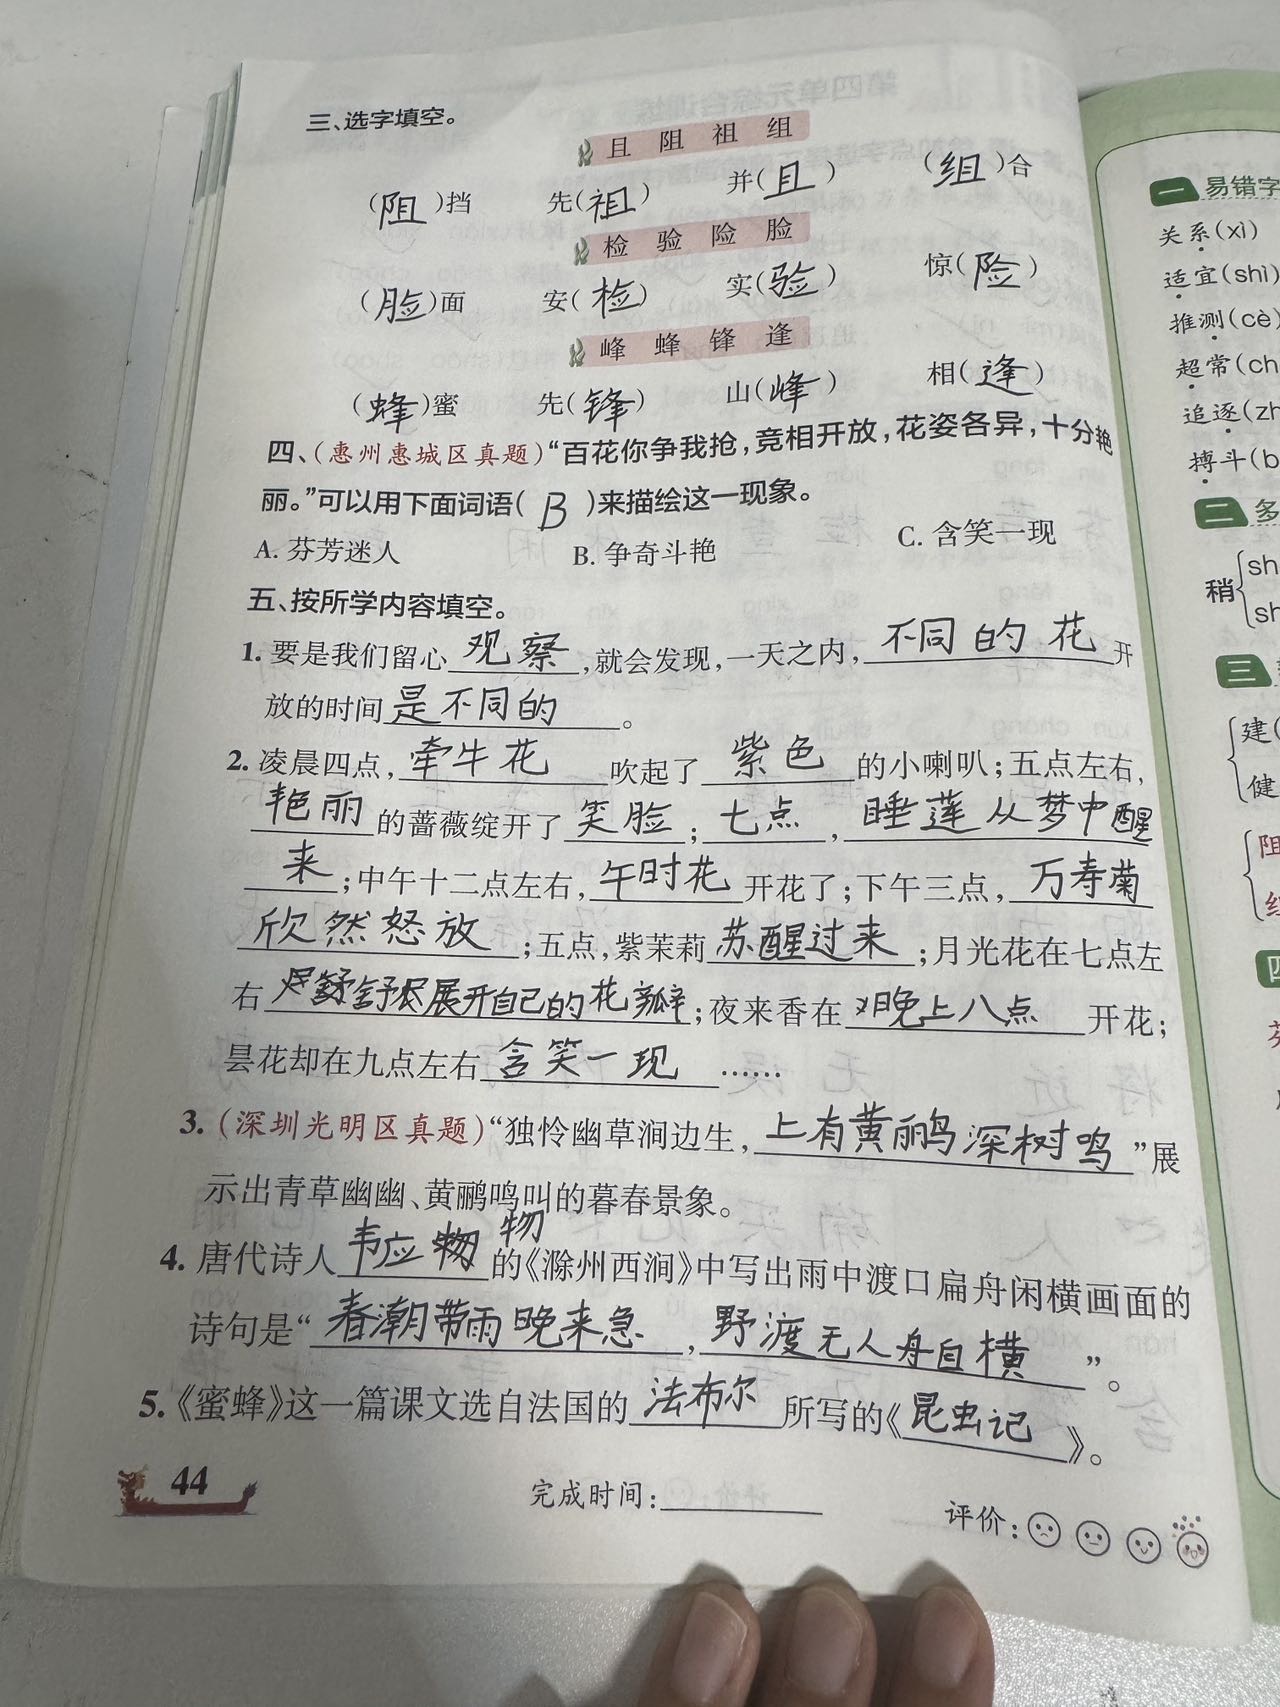 三、选字填空。
且 阻 祖 组
(阻)挡 先(祖) 并(且) (组)合
检 验 险 脸
(脸)面 安(检) 实(验) 惊(险)
峰 蜂 锋 逢
(蜂)蜜 先(锋) 山(峰) 相(逢)
四、(惠州惠城区真题)“百花你争我抢,竞相开放,花姿各异,十分艳
丽。”可以用下面词语( B )来描绘这一现象。
A. 芬芳迷人 B. 争奇斗艳 C. 含笑一现
五、按所学内容填空。
1. 要是我们留心观察,就会发现,一天之内,不同的花开
放的时间是不同的。
2. 凌晨四点,牵牛花吹起了紫色的小喇叭;五点左右,
艳丽的蔷薇绽开了笑脸;七点,睡莲从梦中醒
来;中午十二点左右,午时花开花了;下午三点,万寿菊
欣然怒放;五点,紫茉莉苏醒过来;月光花在七点左
右舒展开自己的花瓣;夜来香在晚上八点开花;
昙花却在九点左右含笑一现……
3. (深圳光明区真题)“独怜幽草涧边生,上有黄鹂深树鸣”展
示出青草幽幽、黄鹂鸣叫的暮春景象。
4. 唐代诗人韦应物物的《滁州西涧》中写出雨中渡口扁舟闲横画面的
诗句是“春潮带雨晚来急,野渡无人舟自横”。
5. 《蜜蜂》这一篇课文选自法国的法布尔所写的《昆虫记》。
44 完成时间: 评价:
一 易错字
关系(xì)
适宜(shì)
推测(cè)
超常(ch
追逐(zh
搏斗(b
二 多
稍
sh
sh
三
建(
健
阻
四